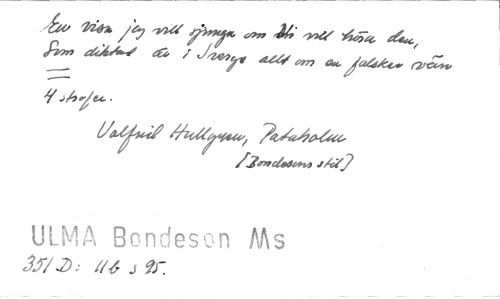 En visa jag vill sjunga om Ni vill höra den,
Som diktad är i Sverge allt om en falsker vän
4 strofer.
Valfrid Hullgren, Pataholm
[Bondesons stil]
ULMA Bondeson Ms
351 D: 11 b s 95.